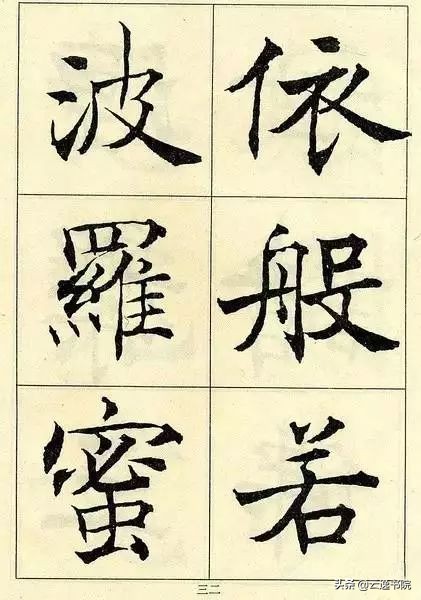 依般若
波羅蜜
三二
头条@云逸书院